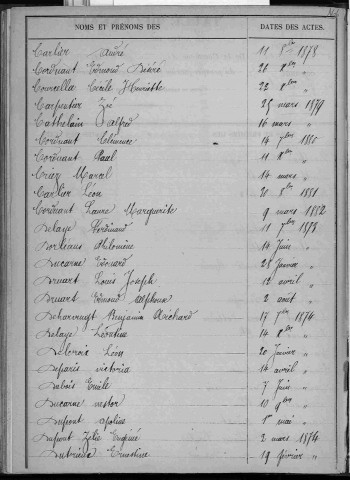 NOMS ET PRÉNOMS DES DATES DES ACTES.
Carlier André 11 8bre 1878
Cordnant Edmond Désiré 26 8bre "
Courcella Cécile Henriette 22 8bre "
Carpentier Zoé 25 mars 1879
Cattelain Alfred 16 mars "
Cordnant Clémence 14 7bre 1880
Cordnant Paul 11 8bre "
Criez Marcel 14 mars "
Carlier Léon 21 8bre 1881
Cordnant Laure Marguerite 9 mars 1882
Delaye Ferdinand 11 7bre 1873
Dorléans Philomène 14 Juin "
Ducarne Edouard 25 Janvier "
Druart Louis Joseph 12 avril "
Druart Edmond Alphonse 2 août "
Benjamin Archard 17 7bre 1874
Delaye Léontine 14 8bre "
Delcroix Léon 20 Janvier "
Deparis victoria 14 avril "
Dubois Emile 7 Juin "
Ducarne nestor 10 9bre "
Dupont apoline 1er mai "
Dupont Zélie Eugénie 2 mars 1874
Ernestine 19 février "